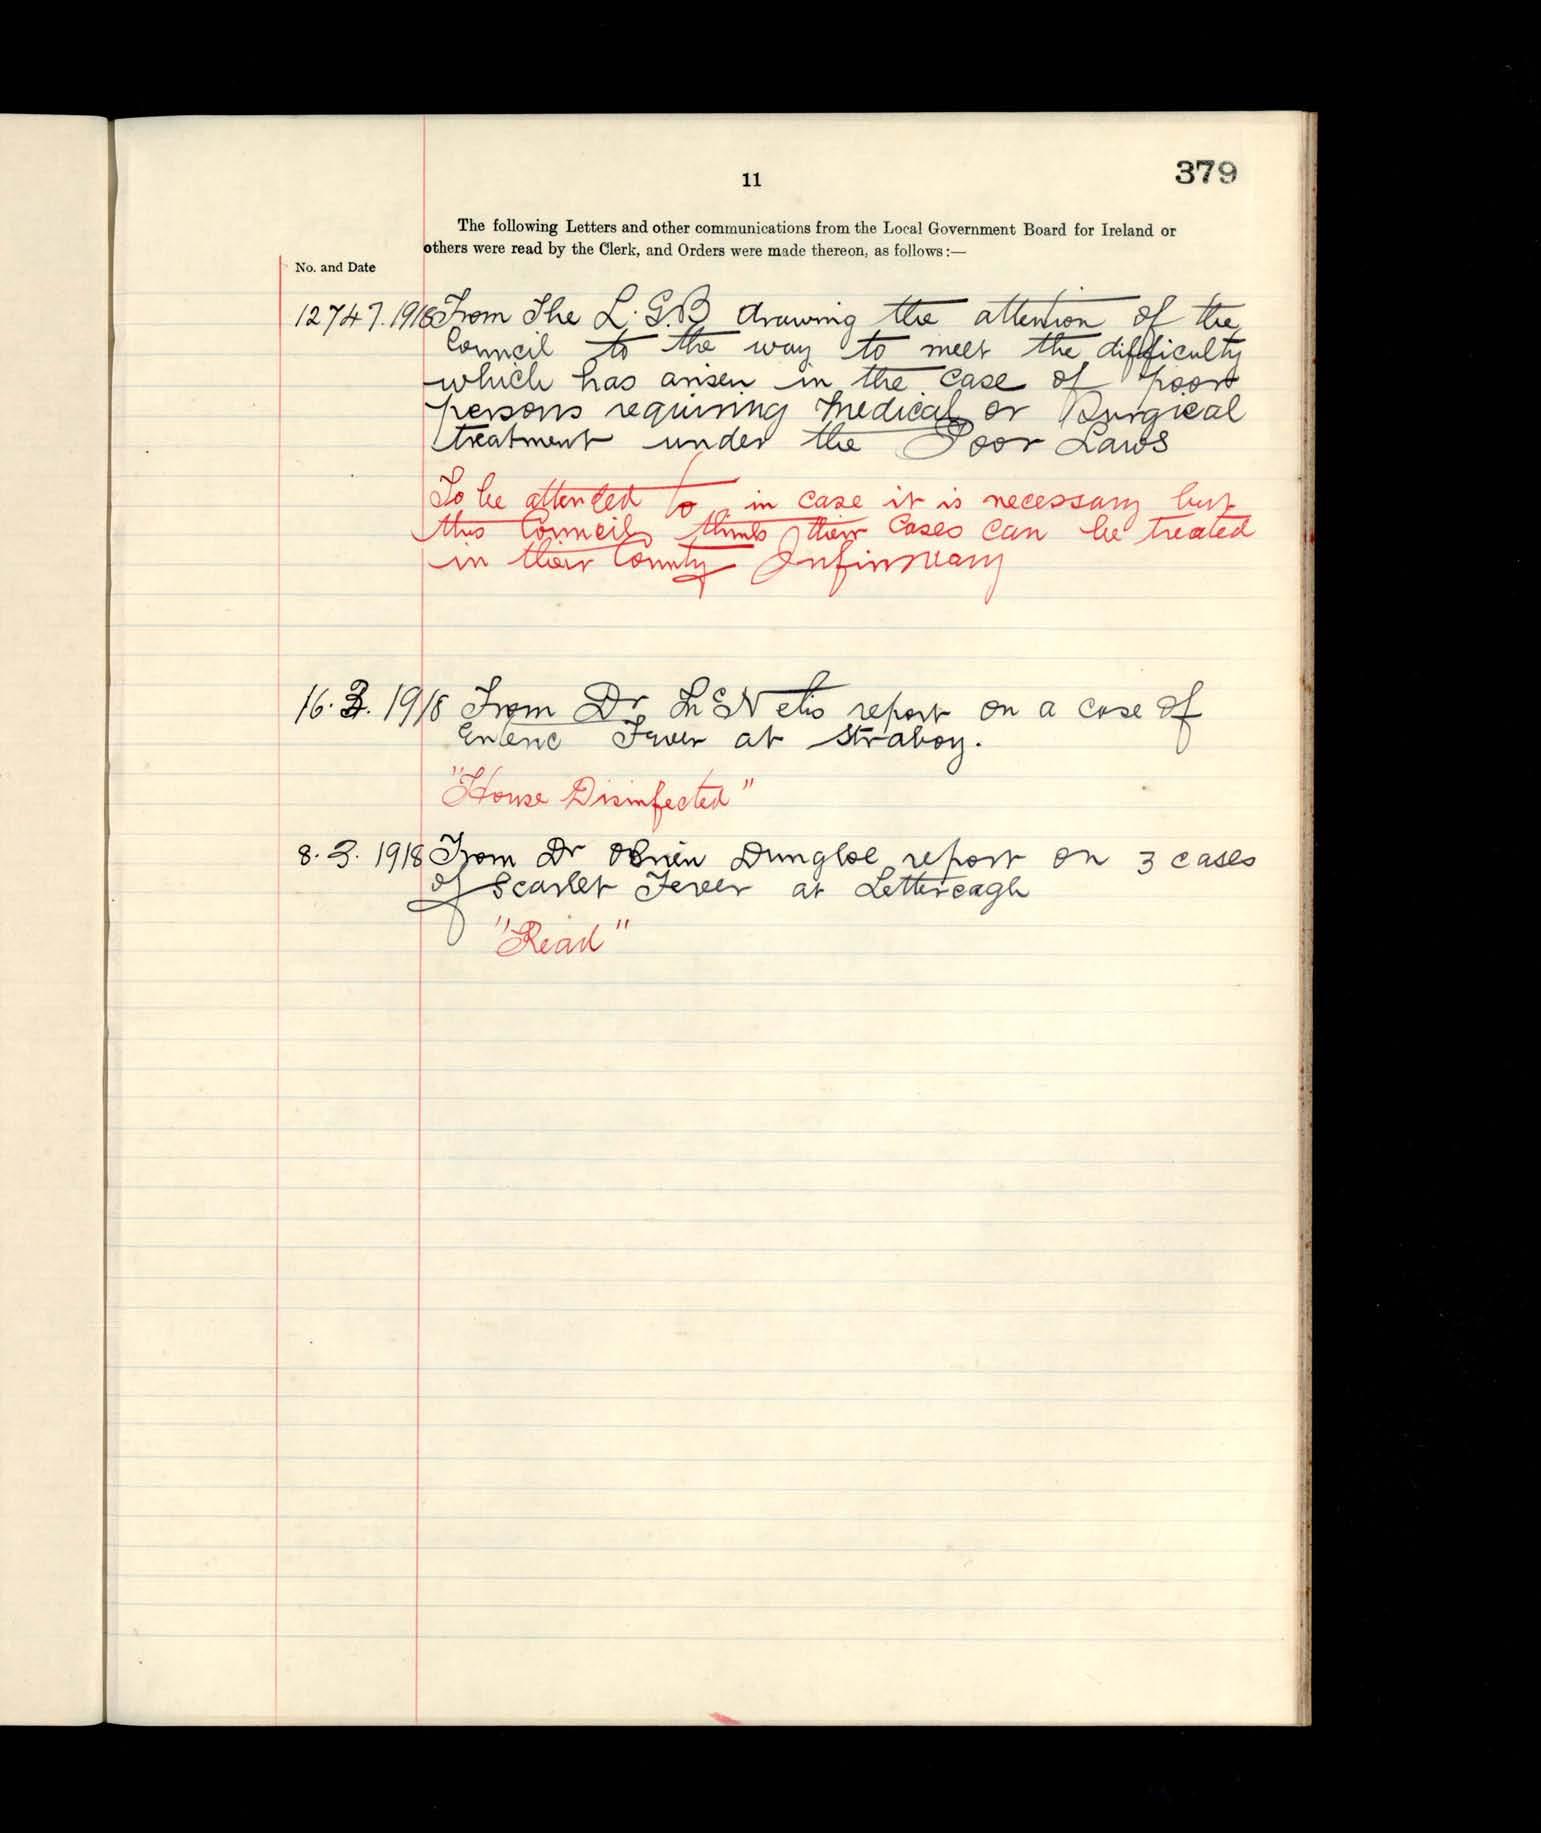 379
11
The following Letters and other communications from the Local Government Board for Ireland or
others were read by the Clerk, and Orders were made thereon, as follows:—
No. and Date
12747.1918 From The L.G.B drawing the attention of the
Council to the way to meet the difficulty
which has arisen in the case of poor
persons requiring medical or Surgical
treatment under the Poor Laws
To be attended to in case it is necessary but
this Council thinks their Cases can be treated
in their County Infirmary
16.3.1918 From Dr report on a case of
Enteric Fever at Straboy.
"House Disinfected"
8.3.1918 From Dr OBrien Dungloe report on 3 cases
of Scarlet Fever at Lettercagh
"Read"